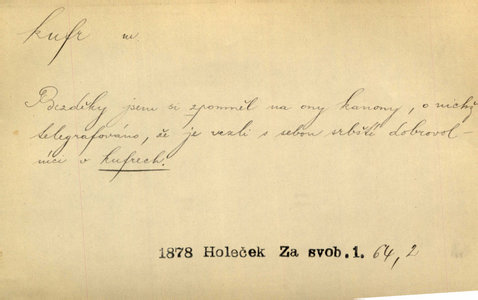 kufr m.
Bezděky jsem si zpomněl na ony kanony, o nichž
telegrafováno, že je vezli s sebou srbští dobrovol-
níci v kufrech.
1878 Holeček Za svob.1. 64,2